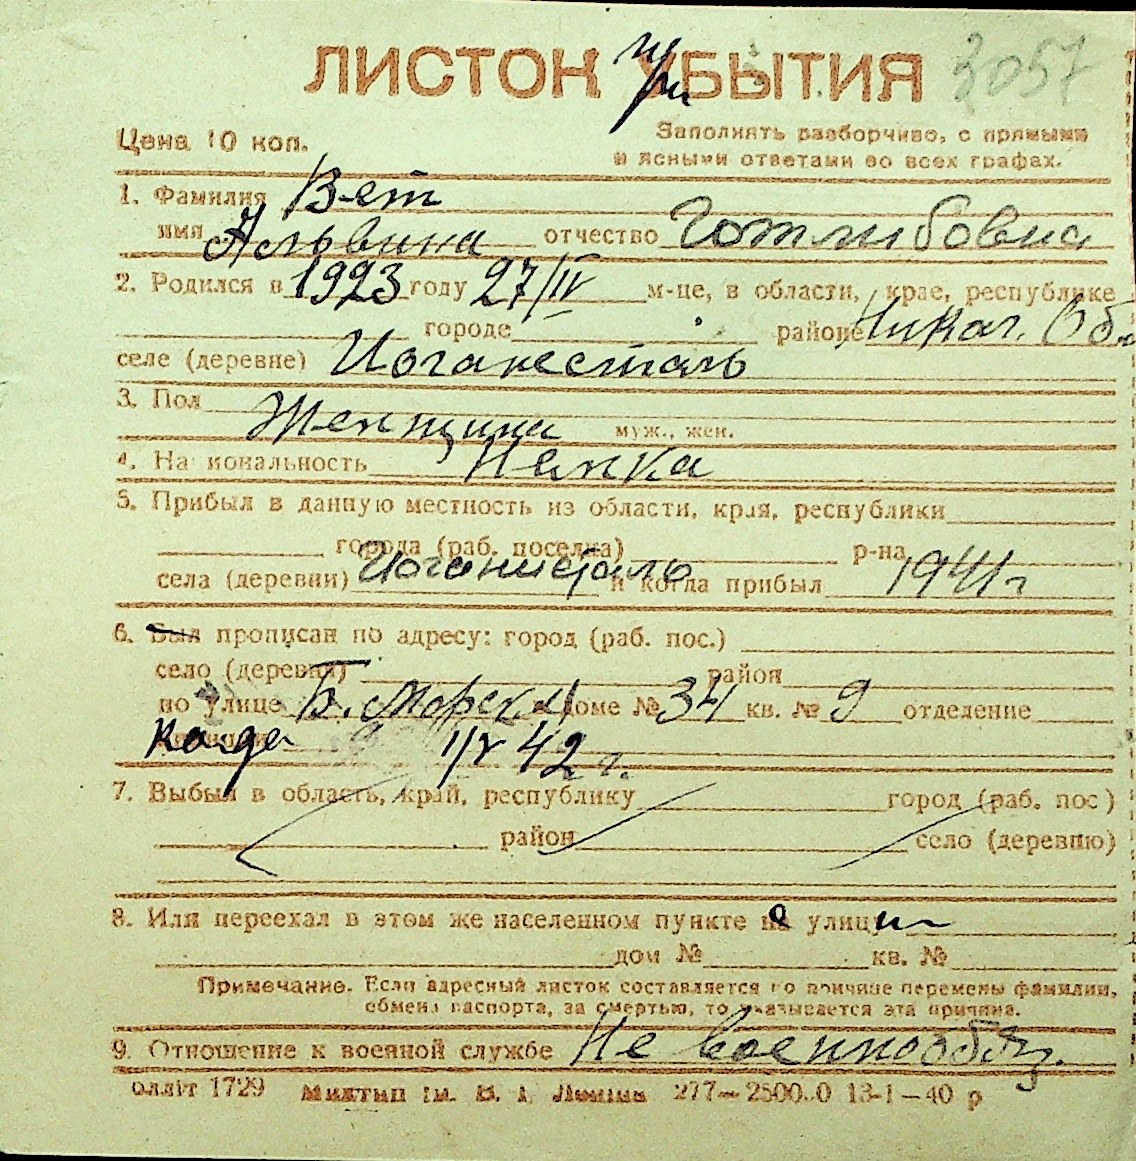 ЛИСТОК УБЫТИЯ 3057
Цена 10 коп.
Заполнять разборчиво, с прямыми
и ясными ответами во всех графах.
1. Фамилия Вет
имя Альвина отчество Готлибовна
2. Родился в 1923 году 27/IV м-це, в области, крае, республике
городе районе Никол. Обл
селе (деревне) Иоганесталь
3. Пол Женщина муж., жен.
4. Национальность Немка
5. Прибыл в данную местность из области, края, республики
города (раб. поселка) р-на
села (деревни) Иоганисталь и когда прибыл 1941 г
6. Был прописан по адресу: город (раб. пос.)
село (деревня) район
по улице Б. Морск доме № 34 кв. № 9 отделение
Когда 42 г.
7. Выбыл в область, край, республику город (раб. пос)
район село (деревню)
8. Или переехал в этом же населенном пункте на улицу
дом № кв. №
Примечание. Если адресный листок составляется по причине перемены фамилии,
обмена паспорта, за смертью, то указывается эта причина.
9. Отношение к военной службе Не военнообяз.
оллiт 1729 Миктип iм. В. I. Леніна 277—2500.0 13-1—40 р